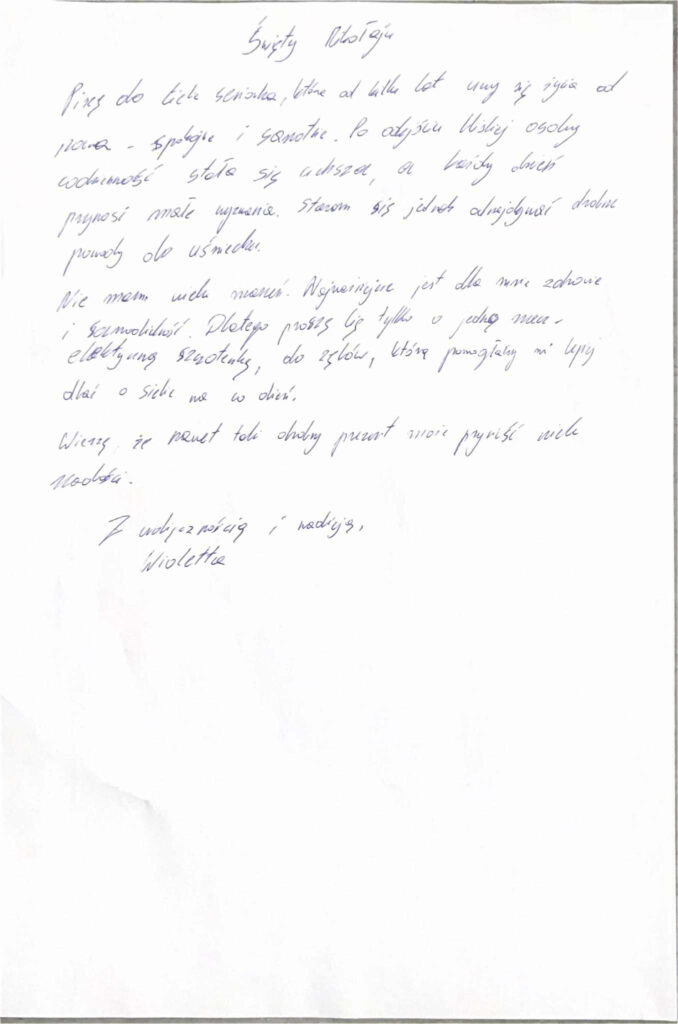 Święty Mikołaju
Piszę do Ciebie seniorka, która od kilku lat uczy się życia od
nowa - spokojnie i samotnie. Po odejściu bliskiej osoby
codzienność stała się cichsza, a każdy dzień
przynosi małe wyzwania. Staram się jednak odnajdywać drobne
powody do uśmiechu.
Nie mam wielu marzeń. Najważniejsze jest dla mnie zdrowie
i samodzielność. Dlatego proszę Cię tylko o jedną rzecz -
elektryczną szczoteczkę, do zębów, która pomogłaby mi lepiej
dbać o siebie na co dzień.
Wierzę, że nawet taki drobny prezent może przynieść wiele
radości.
Z wdzięcznością i nadzieją,
Wioletta